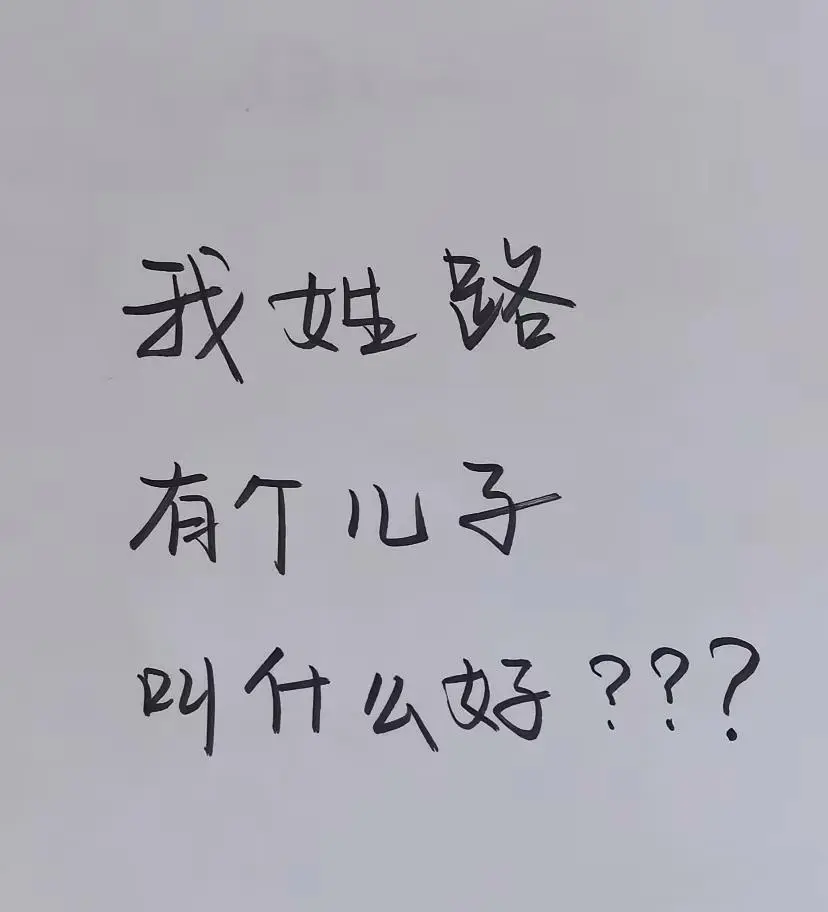 我姓路
有个儿子
叫什么好???